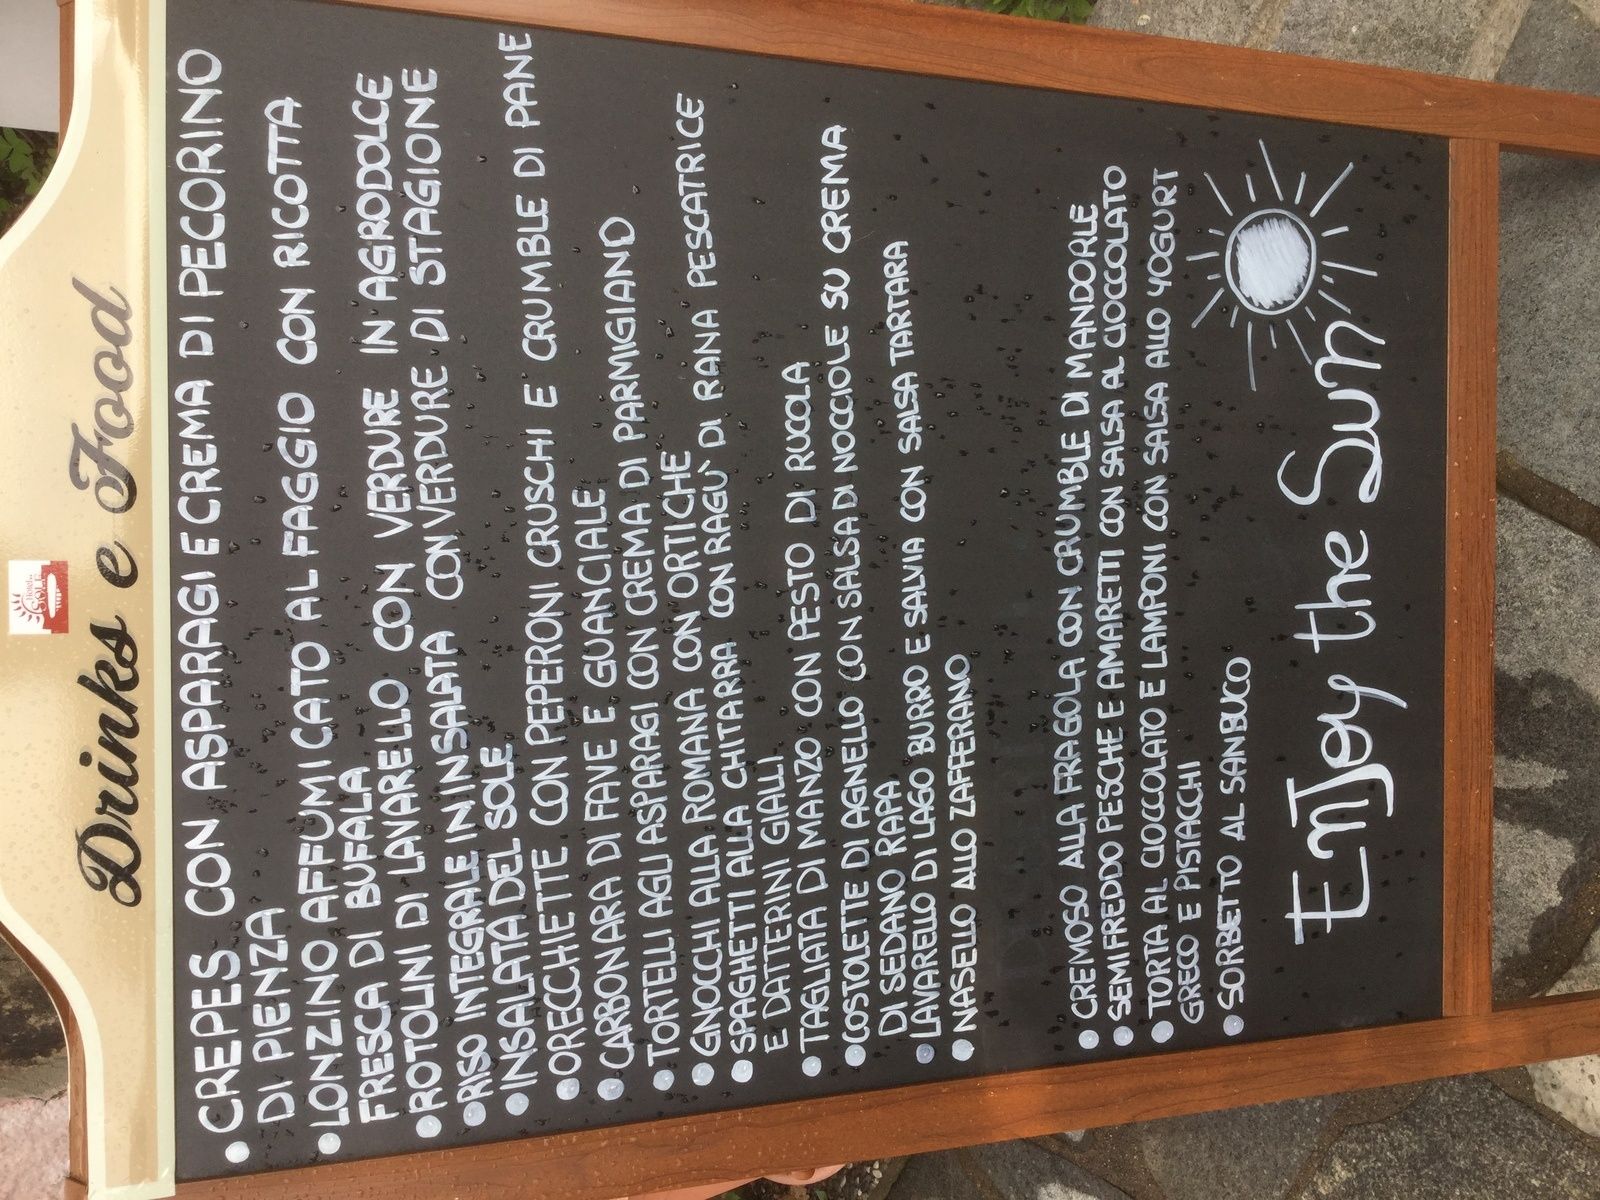 Drinks e Food
SOLE
• CREPES CON ASPARAGI E CREMA DI PECORINO
DI PIENZA
• LONZINO AFFUMICATO AL FAGGIO CON RICOTTA
FRESCA DI BUFALA
• ROTOLINI DI LAVARELLO CON VERDURE IN AGRODOLCE
• RISO INTEGRALE IN INSALATA CON VERDURE DI STAGIONE
• INSALATA DEL SOLE
• ORECCHIETTE CON PEPERONI CRUSCHI E CRUMBLE DI PANE
• CARBONARA DI FAVE E GUANCIALE
• TORTELLI AGLI ASPARAGI CON CREMA DI PARMIGIANO
• GNOCCHI ALLA ROMANA CON ORTICHE
• SPAGHETTI ALLA CHITARRA CON RAGÙ DI RANA PESCATRICE
E DATTERINI GIALLI
• TAGLIATA DI MANZO CON PESTO DI RUCOLA
• COSTOLETTE DI AGNELLO CON SALSA DI NOCCIOLE SU CREMA
DI SEDANO RAPA
• LAVARELLO DI LAGO BURRO E SALVIA CON SALSA TARTARA
• NASELLO ALLO ZAFFERANO
• CREMOSO ALLA FRAGOLA CON CRUMBLE DI MANDORLE
• SEMIFREDDO PESCHE E AMARETTI CON SALSA AL CIOCCOLATO
• TORTA AL CIOCCOLATO E LAMPONI CON SALSA ALLO YOGURT
GRECO E PISTACCHI
• SORBETTO AL SANBUCO
ENJOY the Sun